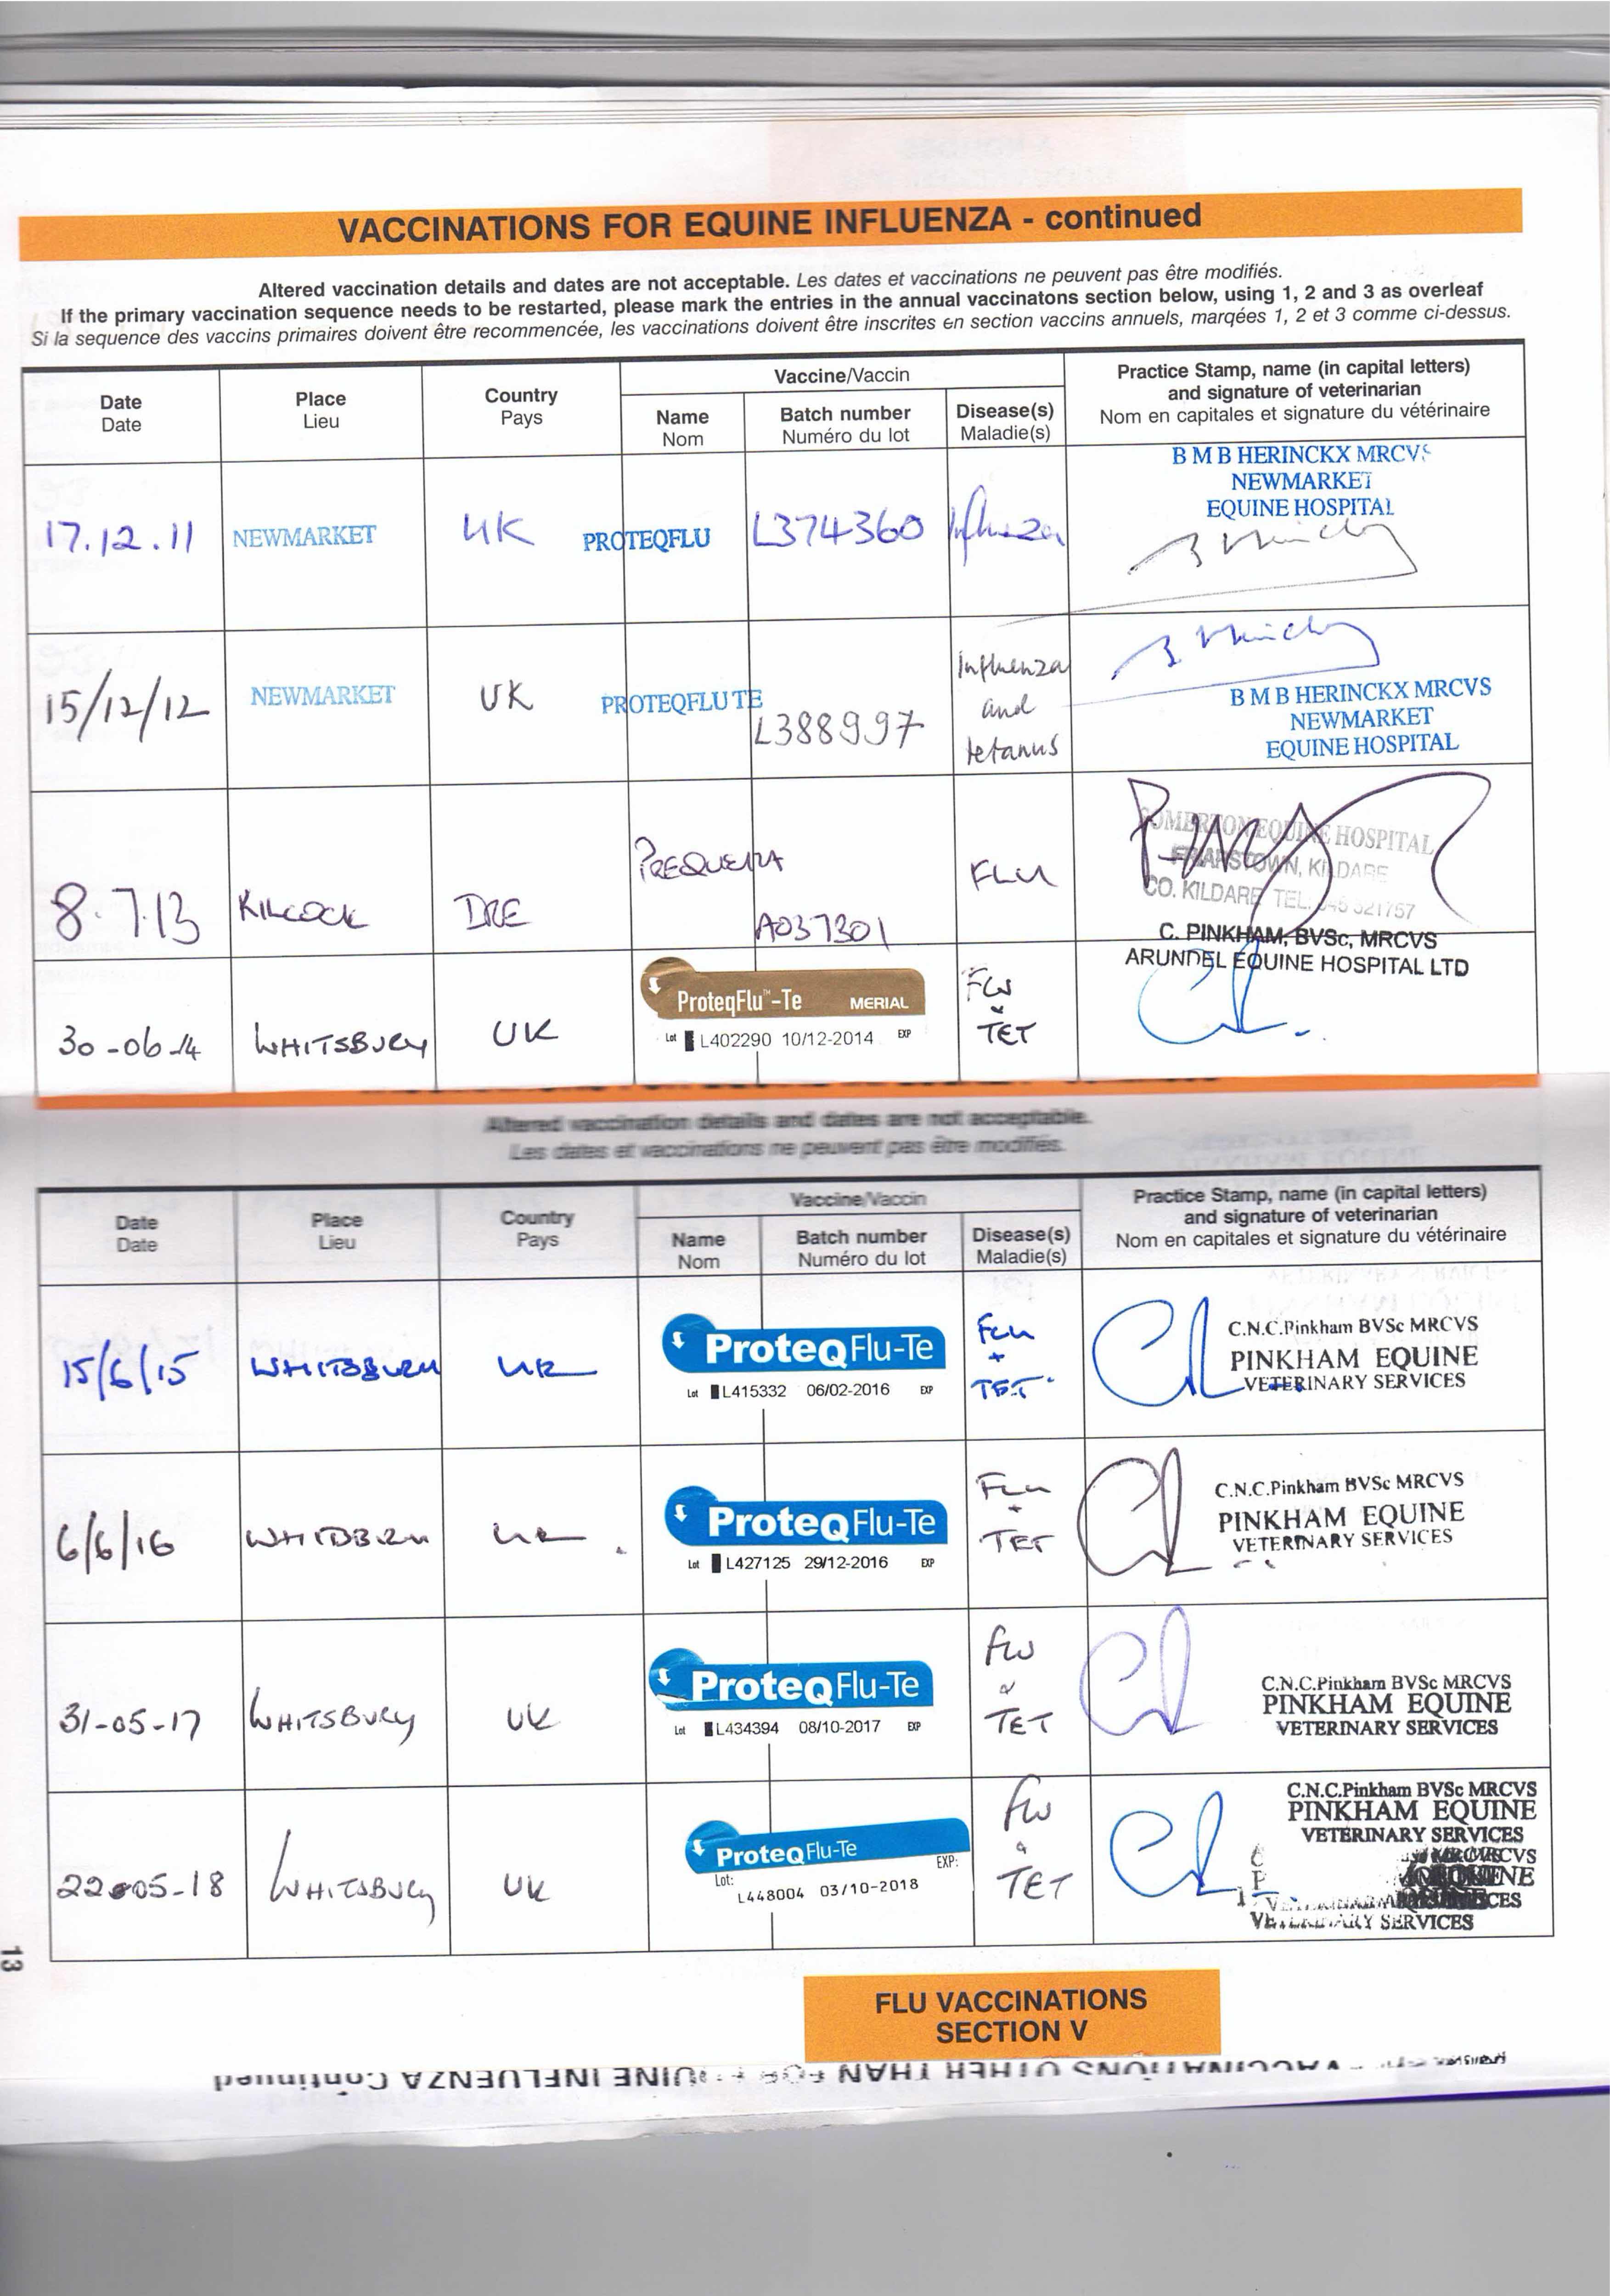 VACCINATIONS FOR EQUINE INFLUENZA - continued
Altered vaccination details and dates are not acceptable. Les dates et vaccinations ne peuvent pas être modifiés.
If the primary vaccination sequence needs to be restarted, please mark the entries in the annual vaccinatons section below, using 1, 2 and 3 as overleaf
Si la sequence des vaccins primaires doivent être recommencée, les vaccinations doivent être inscrites en section vaccins annuels, marqées 1, 2 et 3 comme ci-dessus.
Date
Date
Place
Lieu
Country
Pays
Vaccine/Vaccin
Name
Nom
Batch number
Numéro du lot
Disease(s)
Maladie(s)
Practice Stamp, name (in capital letters)
and signature of veterinarian
Nom en capitales et signature du vétérinaire
17.12.11
NEWMARKET
UK
PROTEQFLU
L374360
Influenza
B M B HERINCKX MRCVS
NEWMARKET
EQUINE HOSPITAL
15/12/12
NEWMARKET
UK
PROTEQFLU TE
L388997
Influenza
and
tetanus
B M B HERINCKX MRCVS
NEWMARKET
EQUINE HOSPITAL
8.7.13
KILCOCK
IRE
PREQUENZA
A037301
FLU
SOMERTON EQUINE HOSPITAL
FRIARSTOWN, KILDARE
CO. KILDARE TEL: 045 521757
30-06-14
WHITSBURY
UK
ProteqFlu™-Te MERIAL
Lot L402290 10/12-2014 EXP
FLU
&
TET
C. PINKHAM, BVSc, MRCVS
ARUNDEL EQUINE HOSPITAL LTD
Altered vaccination details and dates are not acceptable.
Les dates et vaccinations ne peuvent pas être modifiés.
Date
Date
Place
Lieu
Country
Pays
Vaccine/Vaccin
Name
Nom
Batch number
Numéro du lot
Disease(s)
Maladie(s)
Practice Stamp, name (in capital letters)
and signature of veterinarian
Nom en capitales et signature du vétérinaire
15/6/15
WHITSBURY
UK
ProteqFlu-Te
Lot L415332 06/02-2016 EXP
FLU
+
TET
C.N.C.Pinkham BVSc MRCVS
PINKHAM EQUINE
VETERINARY SERVICES
6/6/16
WHITSBURY
UK
ProteqFlu-Te
Lot L427125 29/12-2016 EXP
FLU
+
TET
C.N.C.Pinkham BVSc MRCVS
PINKHAM EQUINE
VETERINARY SERVICES
31-05-17
WHITSBURY
UK
ProteqFlu-Te
Lot L434394 08/10-2017 EXP
FLU
&
TET
C.N.C.Pinkham BVSc MRCVS
PINKHAM EQUINE
VETERINARY SERVICES
22-05-18
WHITSBURY
UK
ProteqFlu-Te
EXP:
Lot:
L448004 03/10-2018
FLU
&
TET
C.N.C.Pinkham BVSc MRCVS
PINKHAM EQUINE
VETERINARY SERVICES
VETERINARY SERVICES
13
FLU VACCINATIONS
SECTION V
VACCINATIONS OTHER THAN FOR EQUINE INFLUENZA Continued